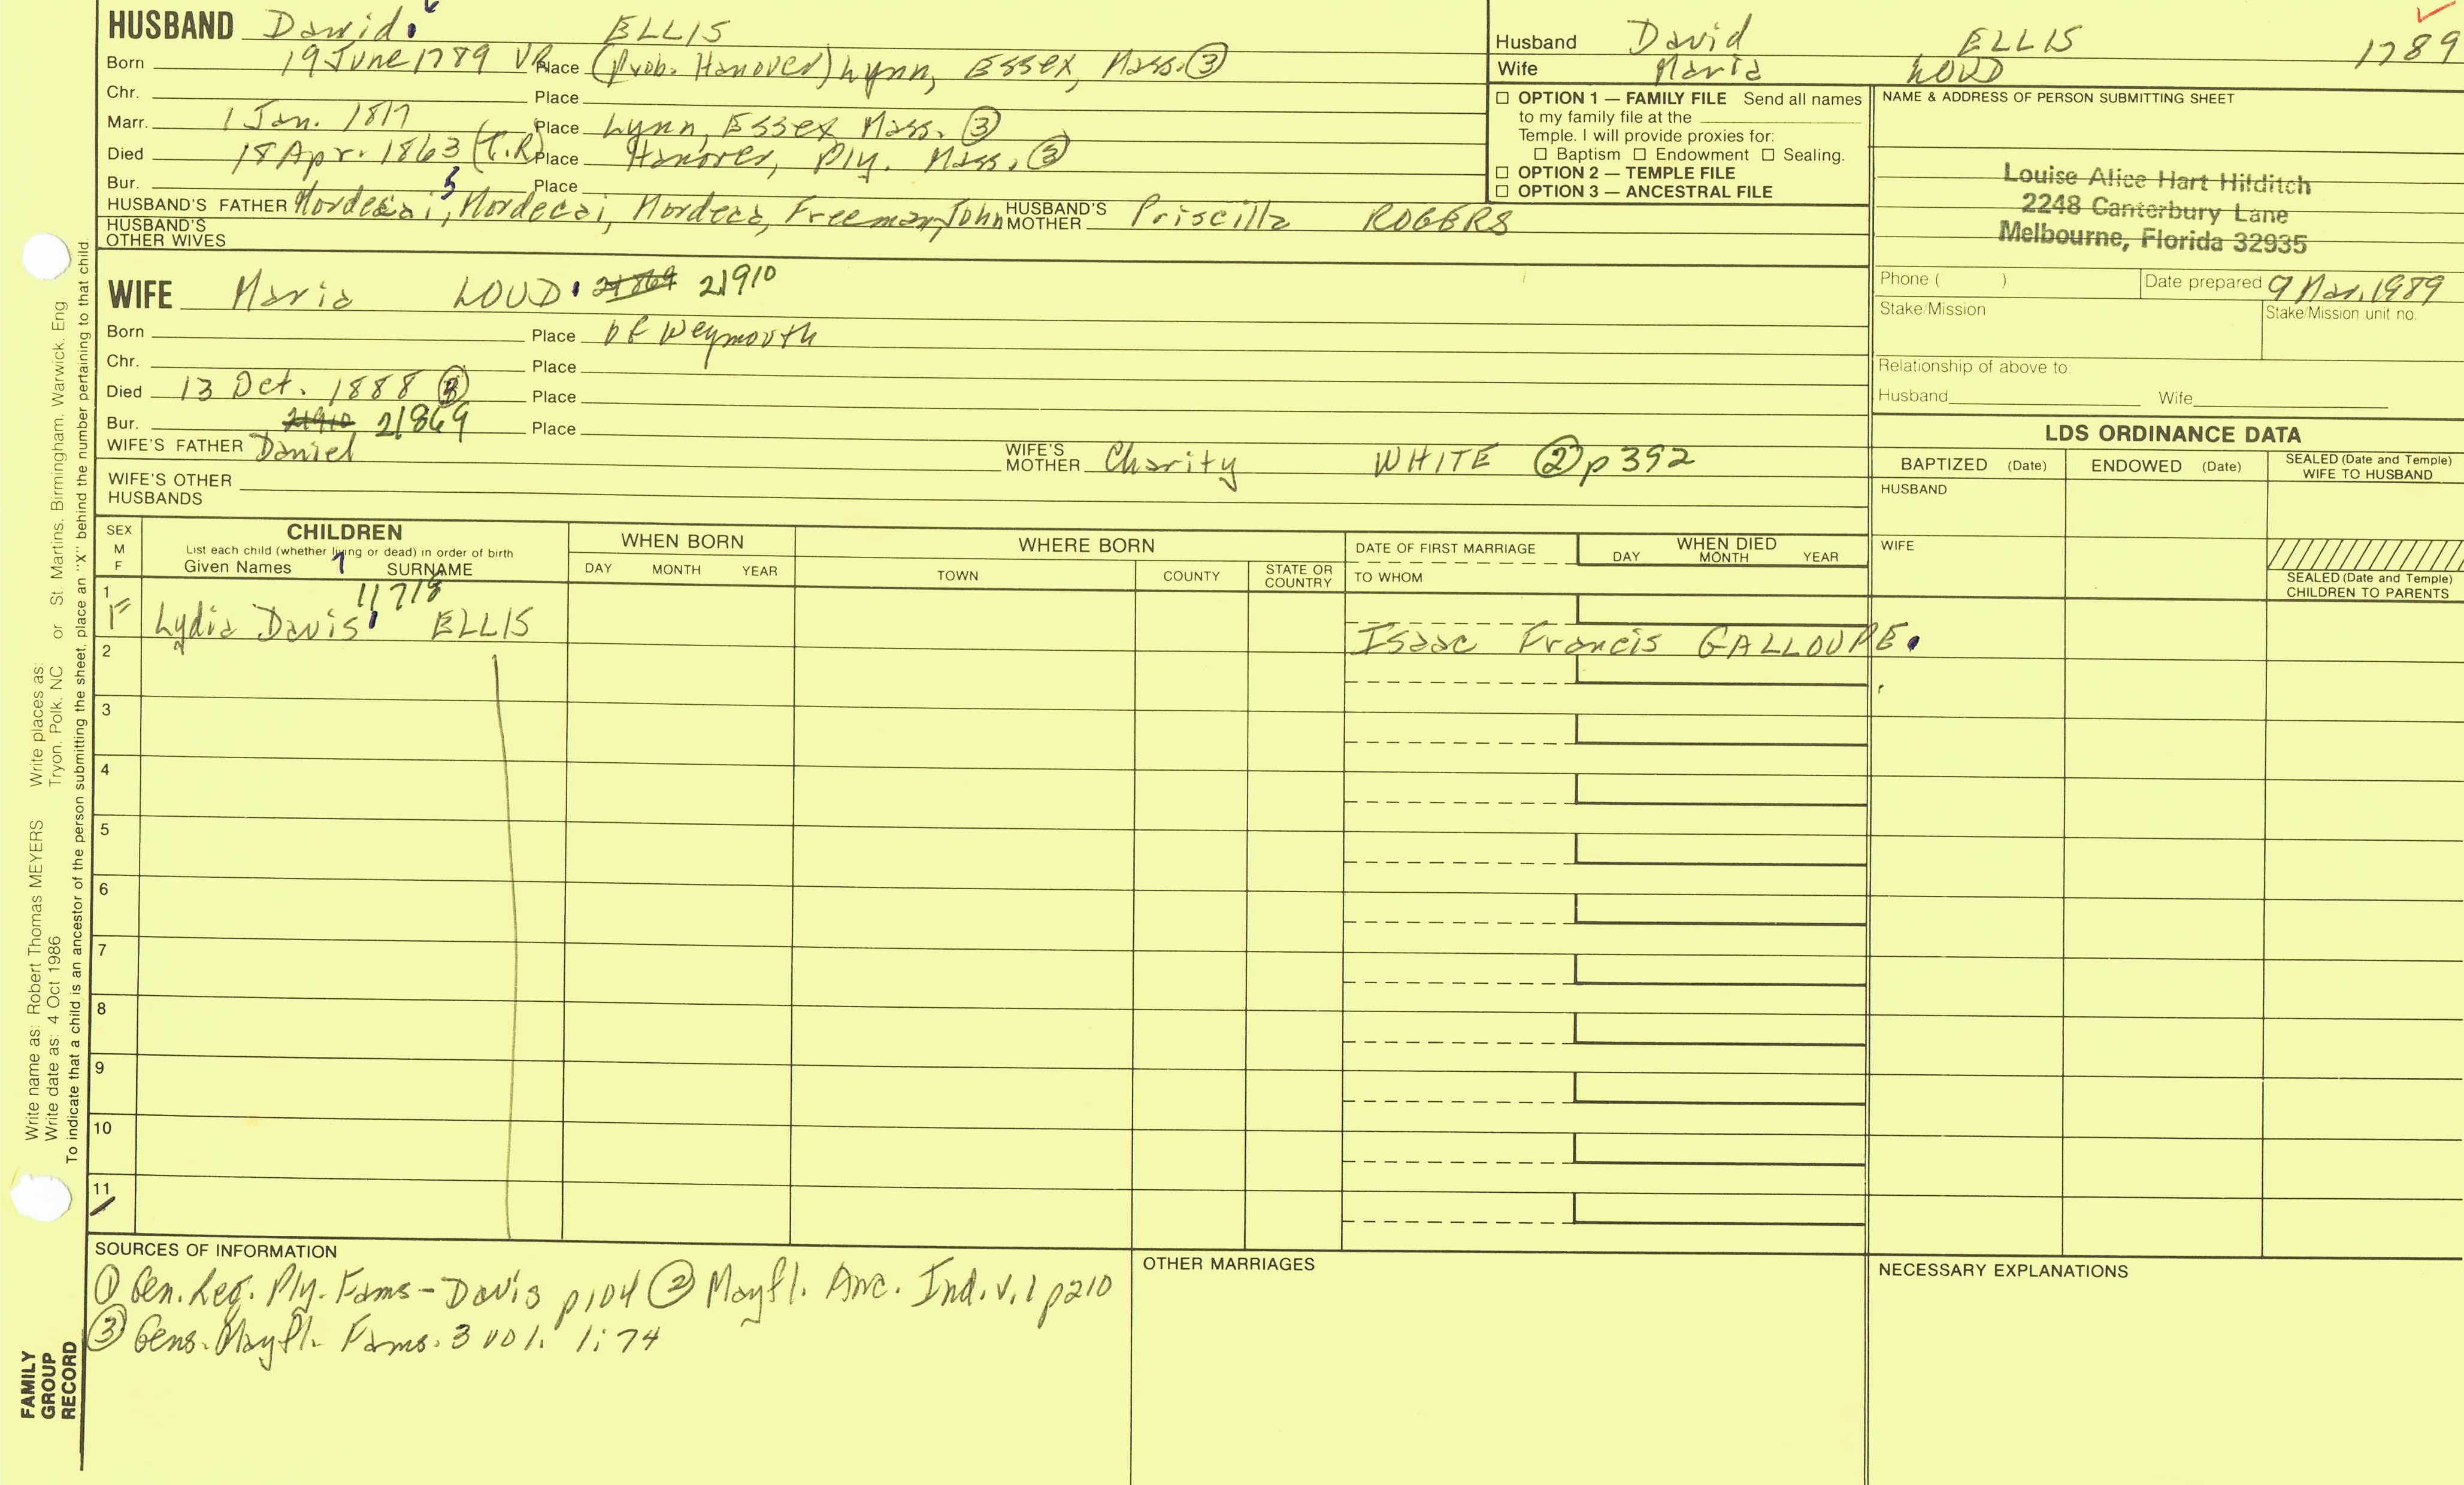 HUSBAND David 6 ELLIS
Born 19 June 1789 VR Place (Prob. Hanover) Lynn, Essex, Mass. ③
Chr. Place
Marr. 1 Jan. 1817 Place Lynn, Essex Mass. ③
Died 18 Apr. 1863 (C.R) Place Hanover, Ply. Mass. ③
Bur. Place
HUSBAND'S FATHER Mordecai 5, Mordecai, Mordeca, Freeman, John HUSBAND'S MOTHER Priscilla ROGERS
HUSBAND'S OTHER WIVES
WIFE Maria LOUD 21869 21910
Born Place of Weymouth
Chr. Place
Died 13 Oct. 1888 ③ Place
Bur. 21910 21869 Place
WIFE'S FATHER Daniel WIFE'S MOTHER Charity WHITE ② p 392
WIFE'S OTHER HUSBANDS
Husband David ELLIS 1789
Wife Maria LOUD
☐ OPTION 1 — FAMILY FILE Send all names
to my family file at the
Temple. I will provide proxies for:
☐ Baptism ☐ Endowment ☐ Sealing.
☐ OPTION 2 — TEMPLE FILE
☐ OPTION 3 — ANCESTRAL FILE
NAME & ADDRESS OF PERSON SUBMITTING SHEET
Louise Alice Hart Hilditch
2248 Canterbury Lane
Melbourne, Florida 32935
Phone ( ) Date prepared 9 Mar. 1989
Stake/Mission Stake/Mission unit no.
Relationship of above to:
Husband Wife
LDS ORDINANCE DATA
BAPTIZED (Date) ENDOWED (Date) SEALED (Date and Temple) WIFE TO HUSBAND
HUSBAND
WIFE
SEALED (Date and Temple)
CHILDREN TO PARENTS
SEX M F CHILDREN WHEN BORN WHERE BORN DATE OF FIRST MARRIAGE WHEN DIED
List each child (whether living or dead) in order of birth
Given Names 7 SURNAME DAY MONTH YEAR TOWN COUNTY STATE OR COUNTRY TO WHOM DAY MONTH YEAR
11718
1 F Lydia Davis ELLIS Isaac Francis GALLOUPE
2
3
4
5
6
7
8
9
10
11
SOURCES OF INFORMATION
① Gen. Reg. Ply. Fams - Davis p104 ② Mayfl. Anc. Ind. v.1 p210
③ Gens. Mayfl. Fams. 3 vol. 1:74
OTHER MARRIAGES
NECESSARY EXPLANATIONS
Write name as: Robert Thomas MEYERS Write places as:
Write date as: 4 Oct 1986 Tryon, Polk, NC or St. Martins, Birmingham, Warwick, Eng
To indicate that a child is an ancestor of the person submitting the sheet, place an "X" behind the number pertaining to that child.
FAMILY
GROUP
RECORD